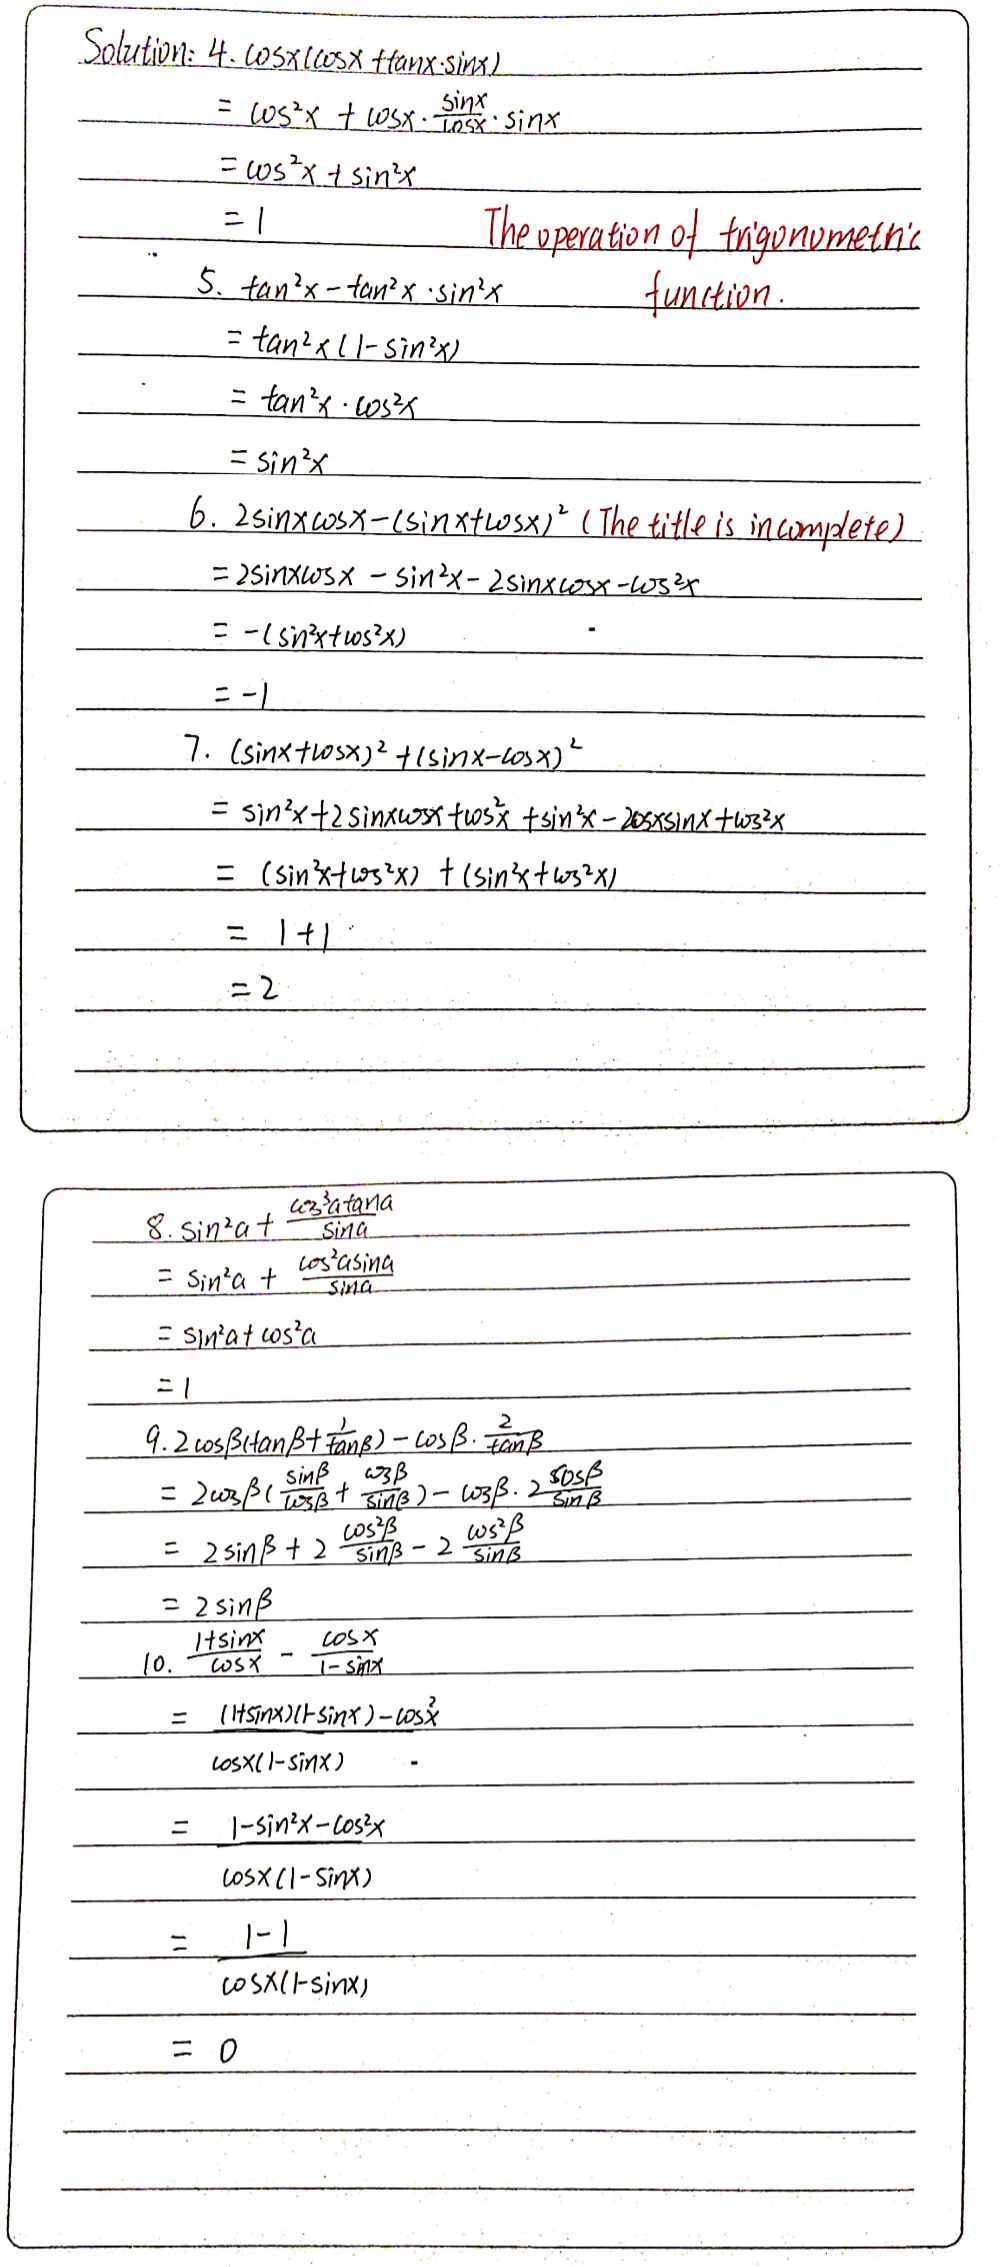 Solution: 4. cosx(cosx+tanx·sinx)
= cos²x + cosx · sinx/cosx · sinx
= cos²x + sin²x
= 1
The operation of trigonometric
function.
5. tan²x - tan²x · sin²x
= tan²x(1 - sin²x)
= tan²x · cos²x
= sin²x
6. 2sinxcosx - (sinx+cosx)² (The title is incomplete)
= 2sinxcosx - sin²x - 2sinxcosx - cos²x
= -(sin²x+cos²x)
= -1
7. (sinx+cosx)² + (sinx-cosx)²
= sin²x + 2sinxcosx + cos²x + sin²x - 2cosxsinx + cos²x
= (sin²x+cos²x) + (sin²x+cos²x)
= 1+1
= 2
8. sin²a + cos³atana/sina
= sin²a + cos²asina/sina
= sin²a + cos²a
= 1
9. 2cosβ(tanβ + 1/tanβ) - cosβ · 2/tanβ
= 2cosβ(sinβ/cosβ + cosβ/sinβ) - cosβ · 2 cosβ/sinβ
= 2sinβ + 2 cos²β/sinβ - 2 cos²β/sinβ
= 2sinβ
10. 1+sinx/cosx - cosx/1-sinx
= (1+sinx)(1-sinx) - cos²x
cosx(1-sinx)
= 1-sin²x-cos²x
cosx(1-sinx)
= 1-1
cosx(1-sinx)
= 0